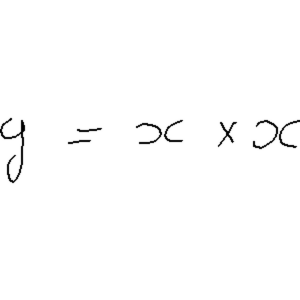 y = x × x